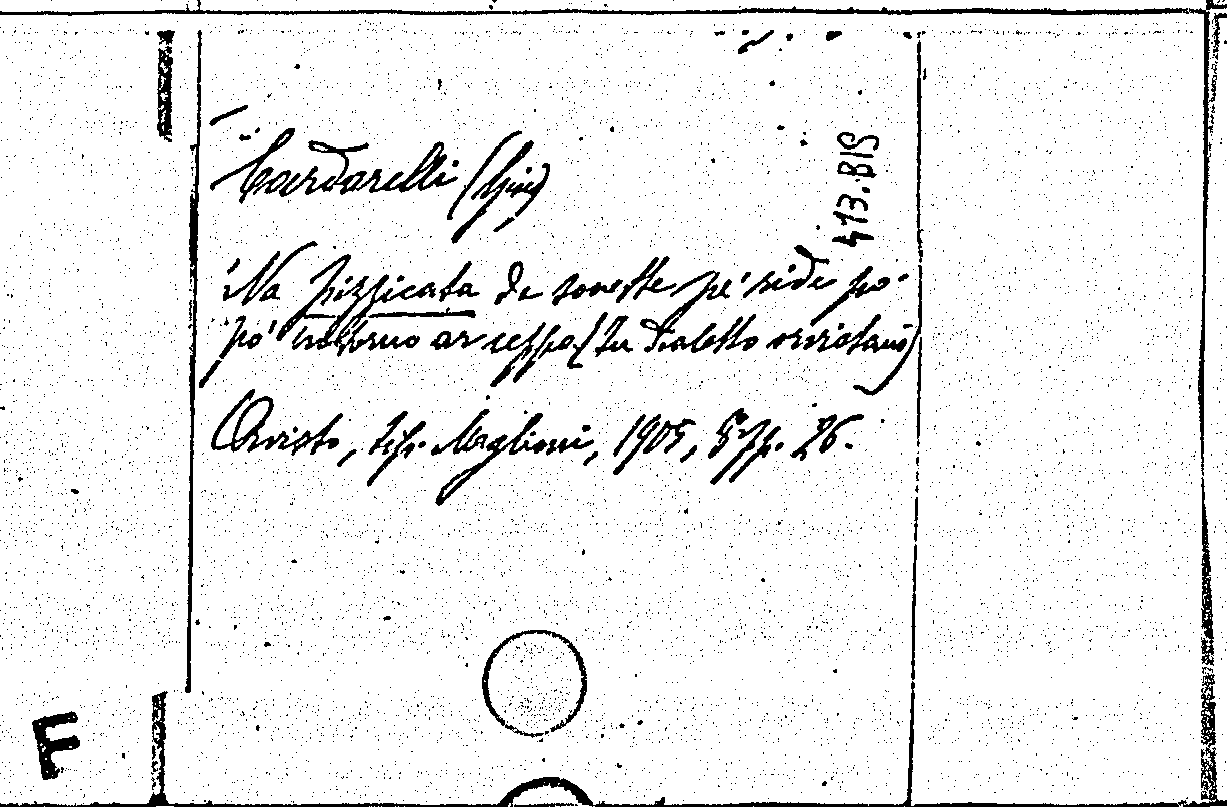 413.BIS
Cardarelli (Gino)
'Na pizzicata de sonette pe' ride po'
po' intorno ar ceppo (In dialetto orvietano)
Orvieto, tip. Maglioni, 1905, 8° pp. 26.
F